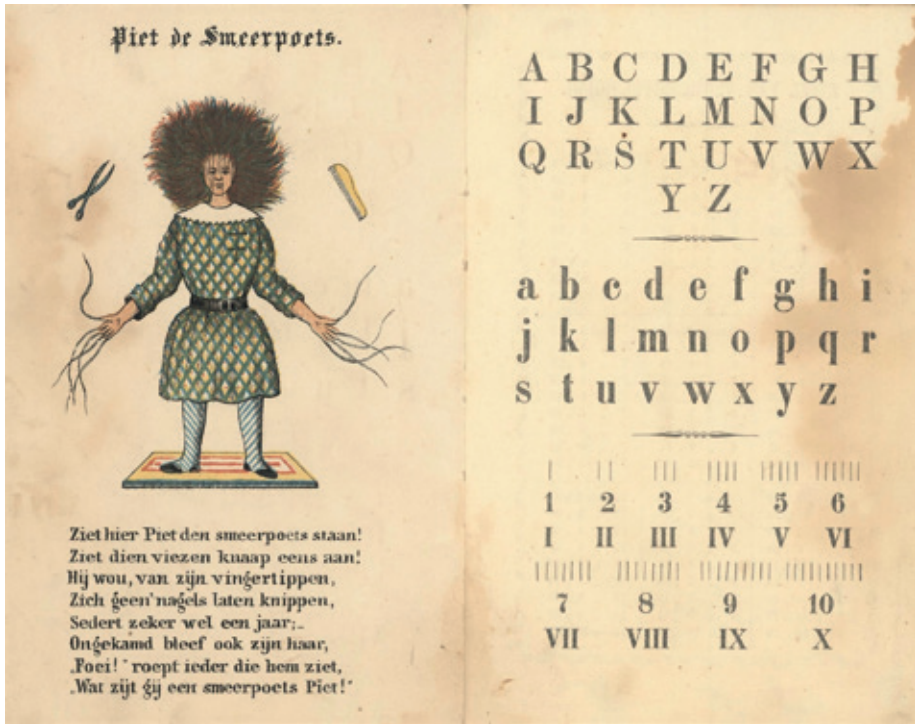 Piet de Smeerpoets.
Ziet hier Piet den smeerpoets staan!
Ziet dien viezen knaap eens aan!
Hij wou, van zijn vingertippen,
Zich geen' nagels laten knippen,
Sedert zeker wel een jaar;_
Ongekamd bleef ook zijn haar,
„Foei!" roept ieder die hem ziet,
„Wat zijt gij een smeerpoets Piet!"
A B C D E F G H
I J K L M N O P
Q R S T U V W X
Y Z
a b c d e f g h i
j k l m n o p q r
s t u v w x y z
1 2 3 4 5 6
I II III IV V VI
7 8 9 10
VII VIII IX X